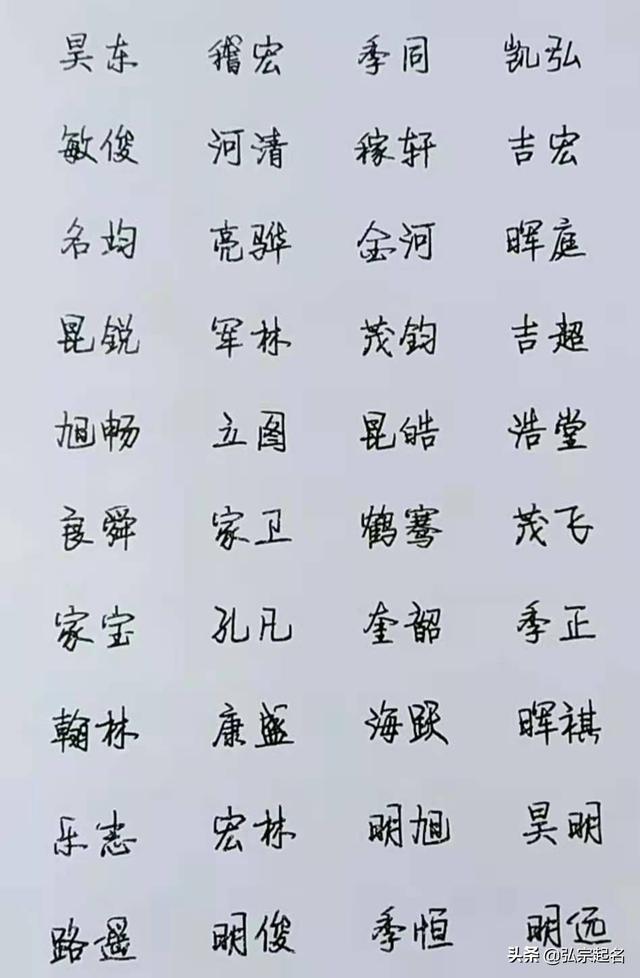 昊东 稽宏 季同 凯弘
敏俊 河清 稼轩 吉宏
名均 亮骅 金河 晖庭
昆锐 军林 茂钧 吉超
旭畅 立图 昆皓 浩堂
良舜 家卫 鹤骞 茂飞
家宝 孔凡 奎韶 季正
翰林 康盛 海跃 晖祺
乐志 宏林 明旭 昊明
路遥 明俊 季恒 明远
头条 @弘宗起名